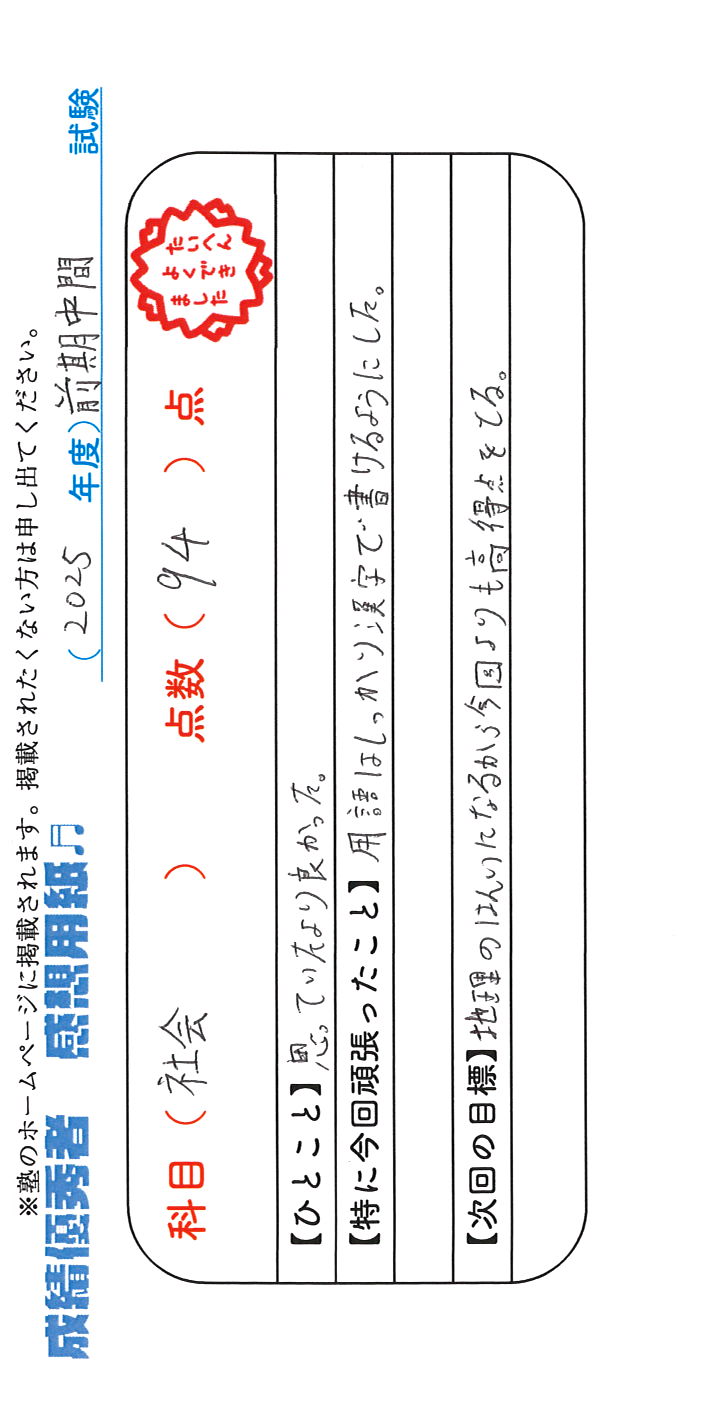 ※塾のホームページに掲載されます。掲載されたくない方は申し出てください。
成績優秀者 感想用紙♫ (2025 年度)前期中間 試験
科目（社会 ） 点数（94 ）点
たいへん
よくでき
ました
【ひとこと】思っていたより良かった。
【特に今回頑張ったこと】用語はしっかり漢字で書けるようにした。
【次回の目標】地理のはんいになるから今回よりも高得点をとる。